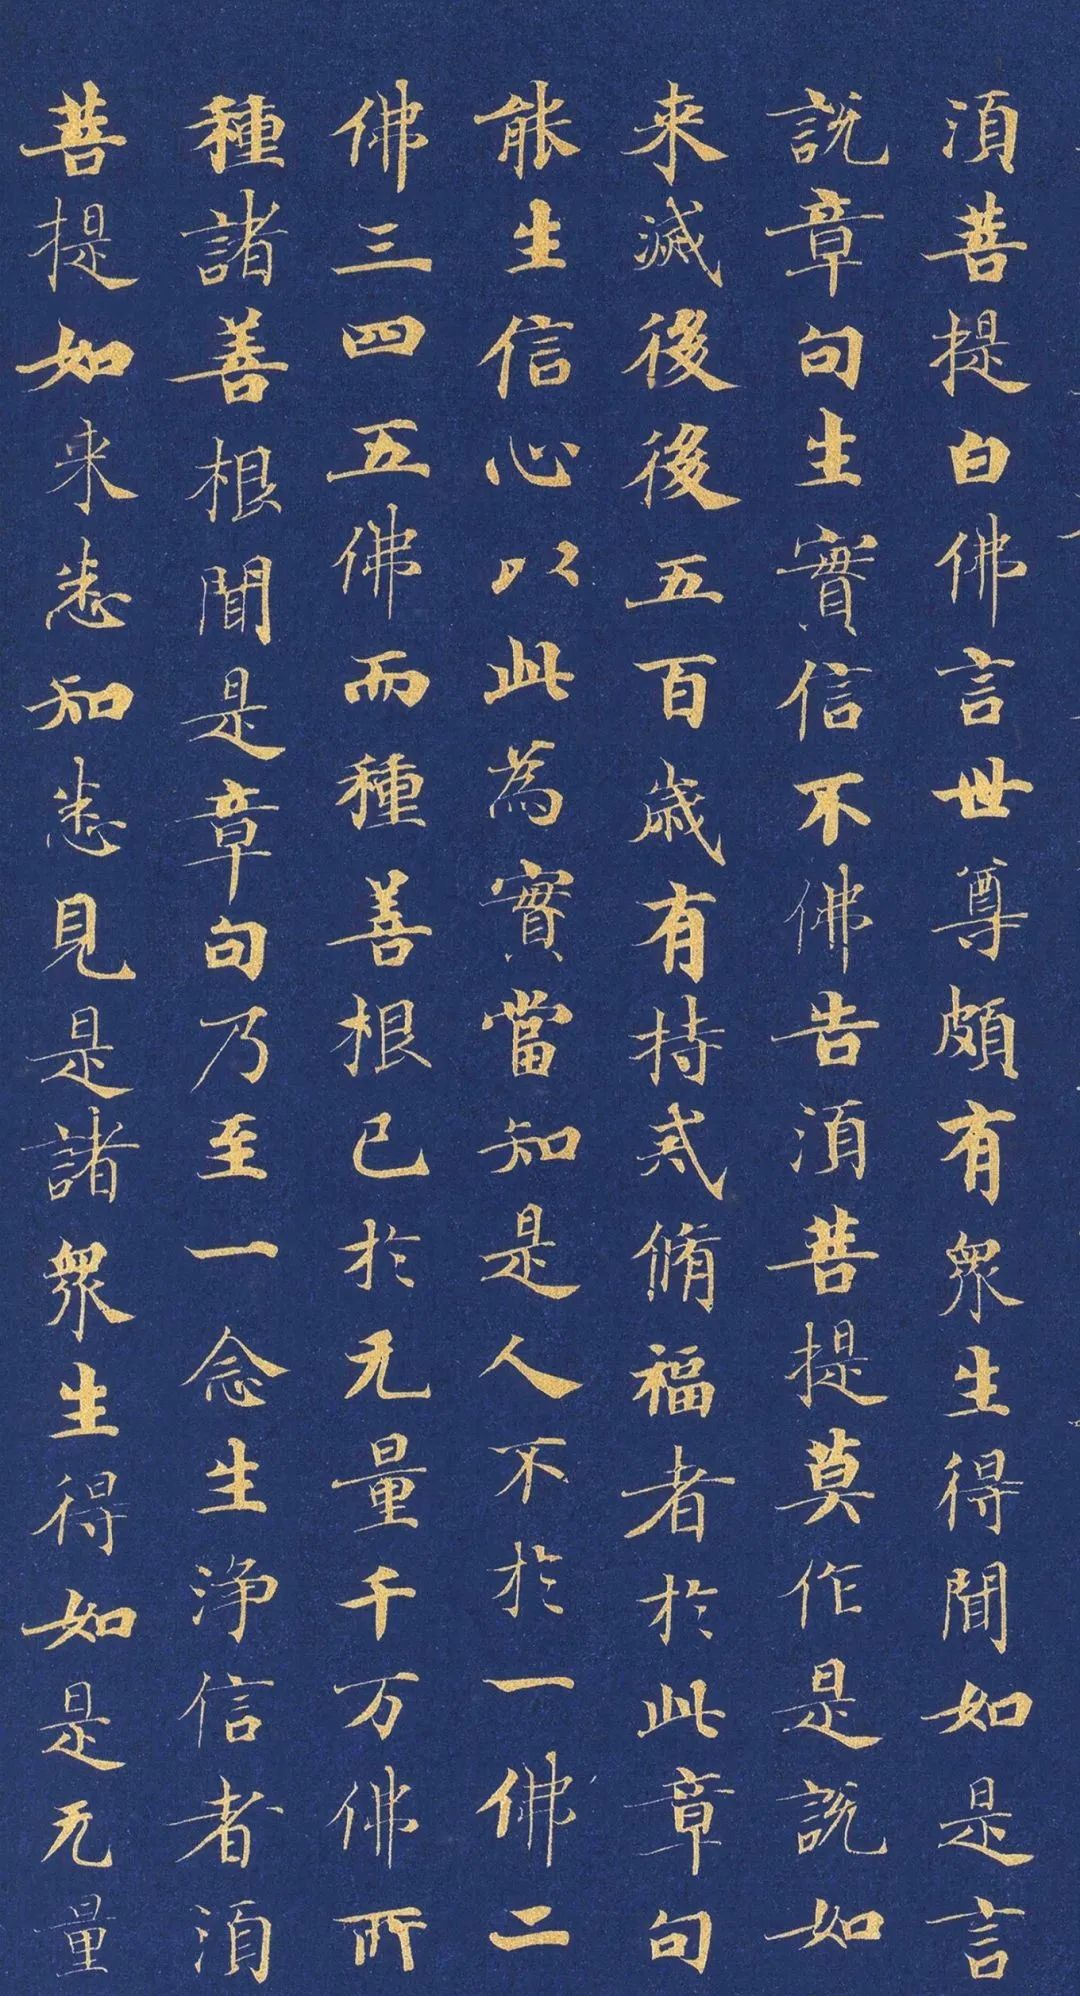 湏菩提白佛言世尊頗有衆生得聞如是言
説章句生實信不佛告湏菩提莫作是説如
来滅後後五百歲有持戒脩福者於此章句
能生信心以此為實當知是人不於一佛二
佛三四五佛而種善根已於无量千万佛所
種諸善根聞是章句乃至一念生淨信者湏
菩提如来悉知悉見是諸衆生得如是无量